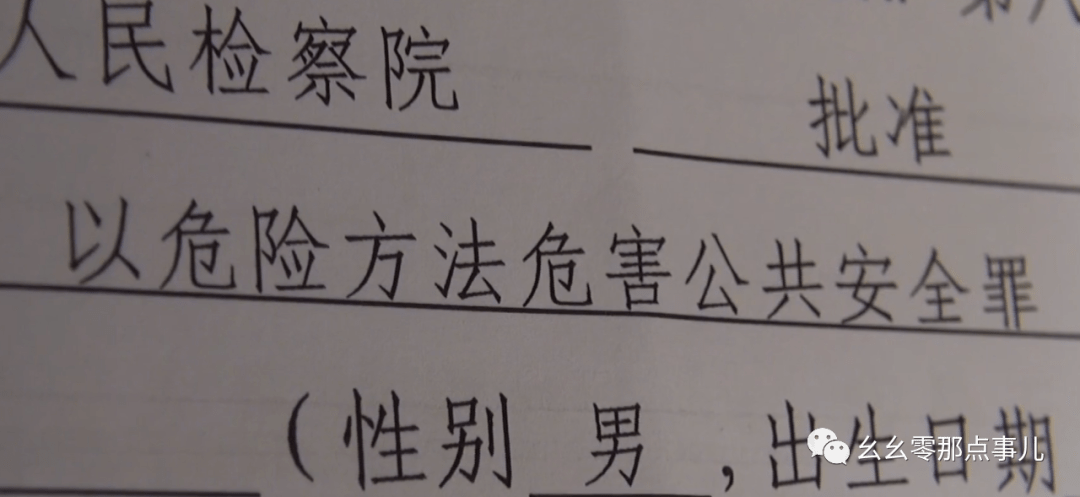 第八
人民检察院 批准
以危险方法危害公共安全罪
(性别 男 ,出生日期
幺幺零那点事儿